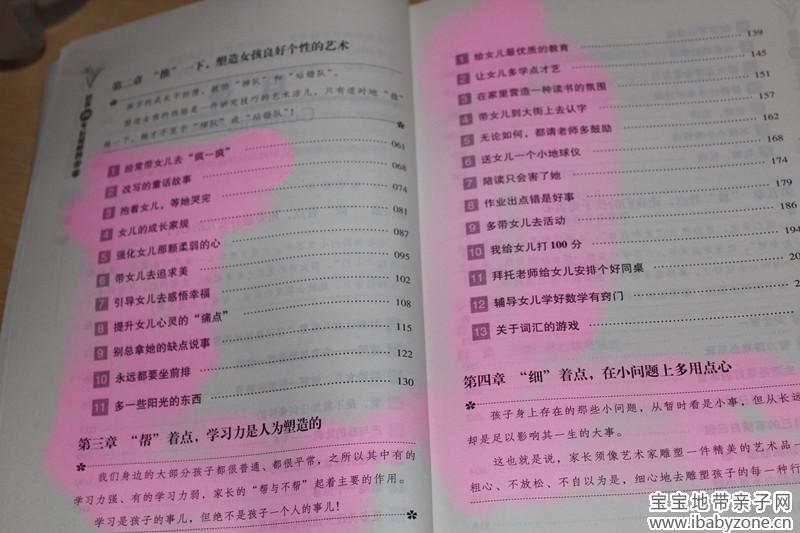 第二章 “推”一下，塑造女孩良好个性的艺术
孩子的成长不怕慢，就怕“掉队”和“站错队”。
塑造女孩的性格是一件研究技巧的艺术活儿，只有适时地“推”
她一下，她才不至于“掉队”或“站错队”！
1 经常带女儿去“疯一疯” 061
2 改写的童话故事 068
3 抱着女儿，等她哭完 074
4 女儿的成长家规 081
5 强化女儿那颗柔弱的心 087
6 带女儿去追求美 095
7 引导女儿去感悟幸福 102
8 提升女儿心灵的“痛点” 108
9 别总拿她的缺点说事 115
10 永远都要坐前排 122
11 多一些阳光的东西 130
第三章 “帮”着点，学习力是人为塑造的
我们身边的大部分孩子都很普通、都很平常，之所以其中有的
学习力强、有的学习力弱，家长的“帮与不帮”起着主要的作用。
学习是孩子的事儿，但绝不是孩子一个人的事儿！
1 给女儿最优质的教育 139
2 让女儿多学点才艺 145
3 在家里营造一种读书的氛围 151
4 带女儿到大街上去认字 157
5 无论如何，都请老师多鼓励 162
6 送女儿一个小地球仪 168
7 陪读只会害了她 174
8 作业出点错是好事 179
9 多带女儿去活动 186
10 我给女儿打100分 194
11 拜托老师给女儿安排个好同桌 20
12 辅导女儿学好数学有窍门 2
13 关于词汇的游戏
第四章 “细”着点，在小问题上多用点心
孩子身上存在的那些小问题，从暂时看是小事，但从长远
却是足以影响其一生的大事。
这也就是说，家长须像艺术家雕塑一件精美的艺术品一
粗心、不放松、不自以为是，细心地去雕塑孩子的每一种行
宝宝地带亲子网
www.ibabyzone.cn